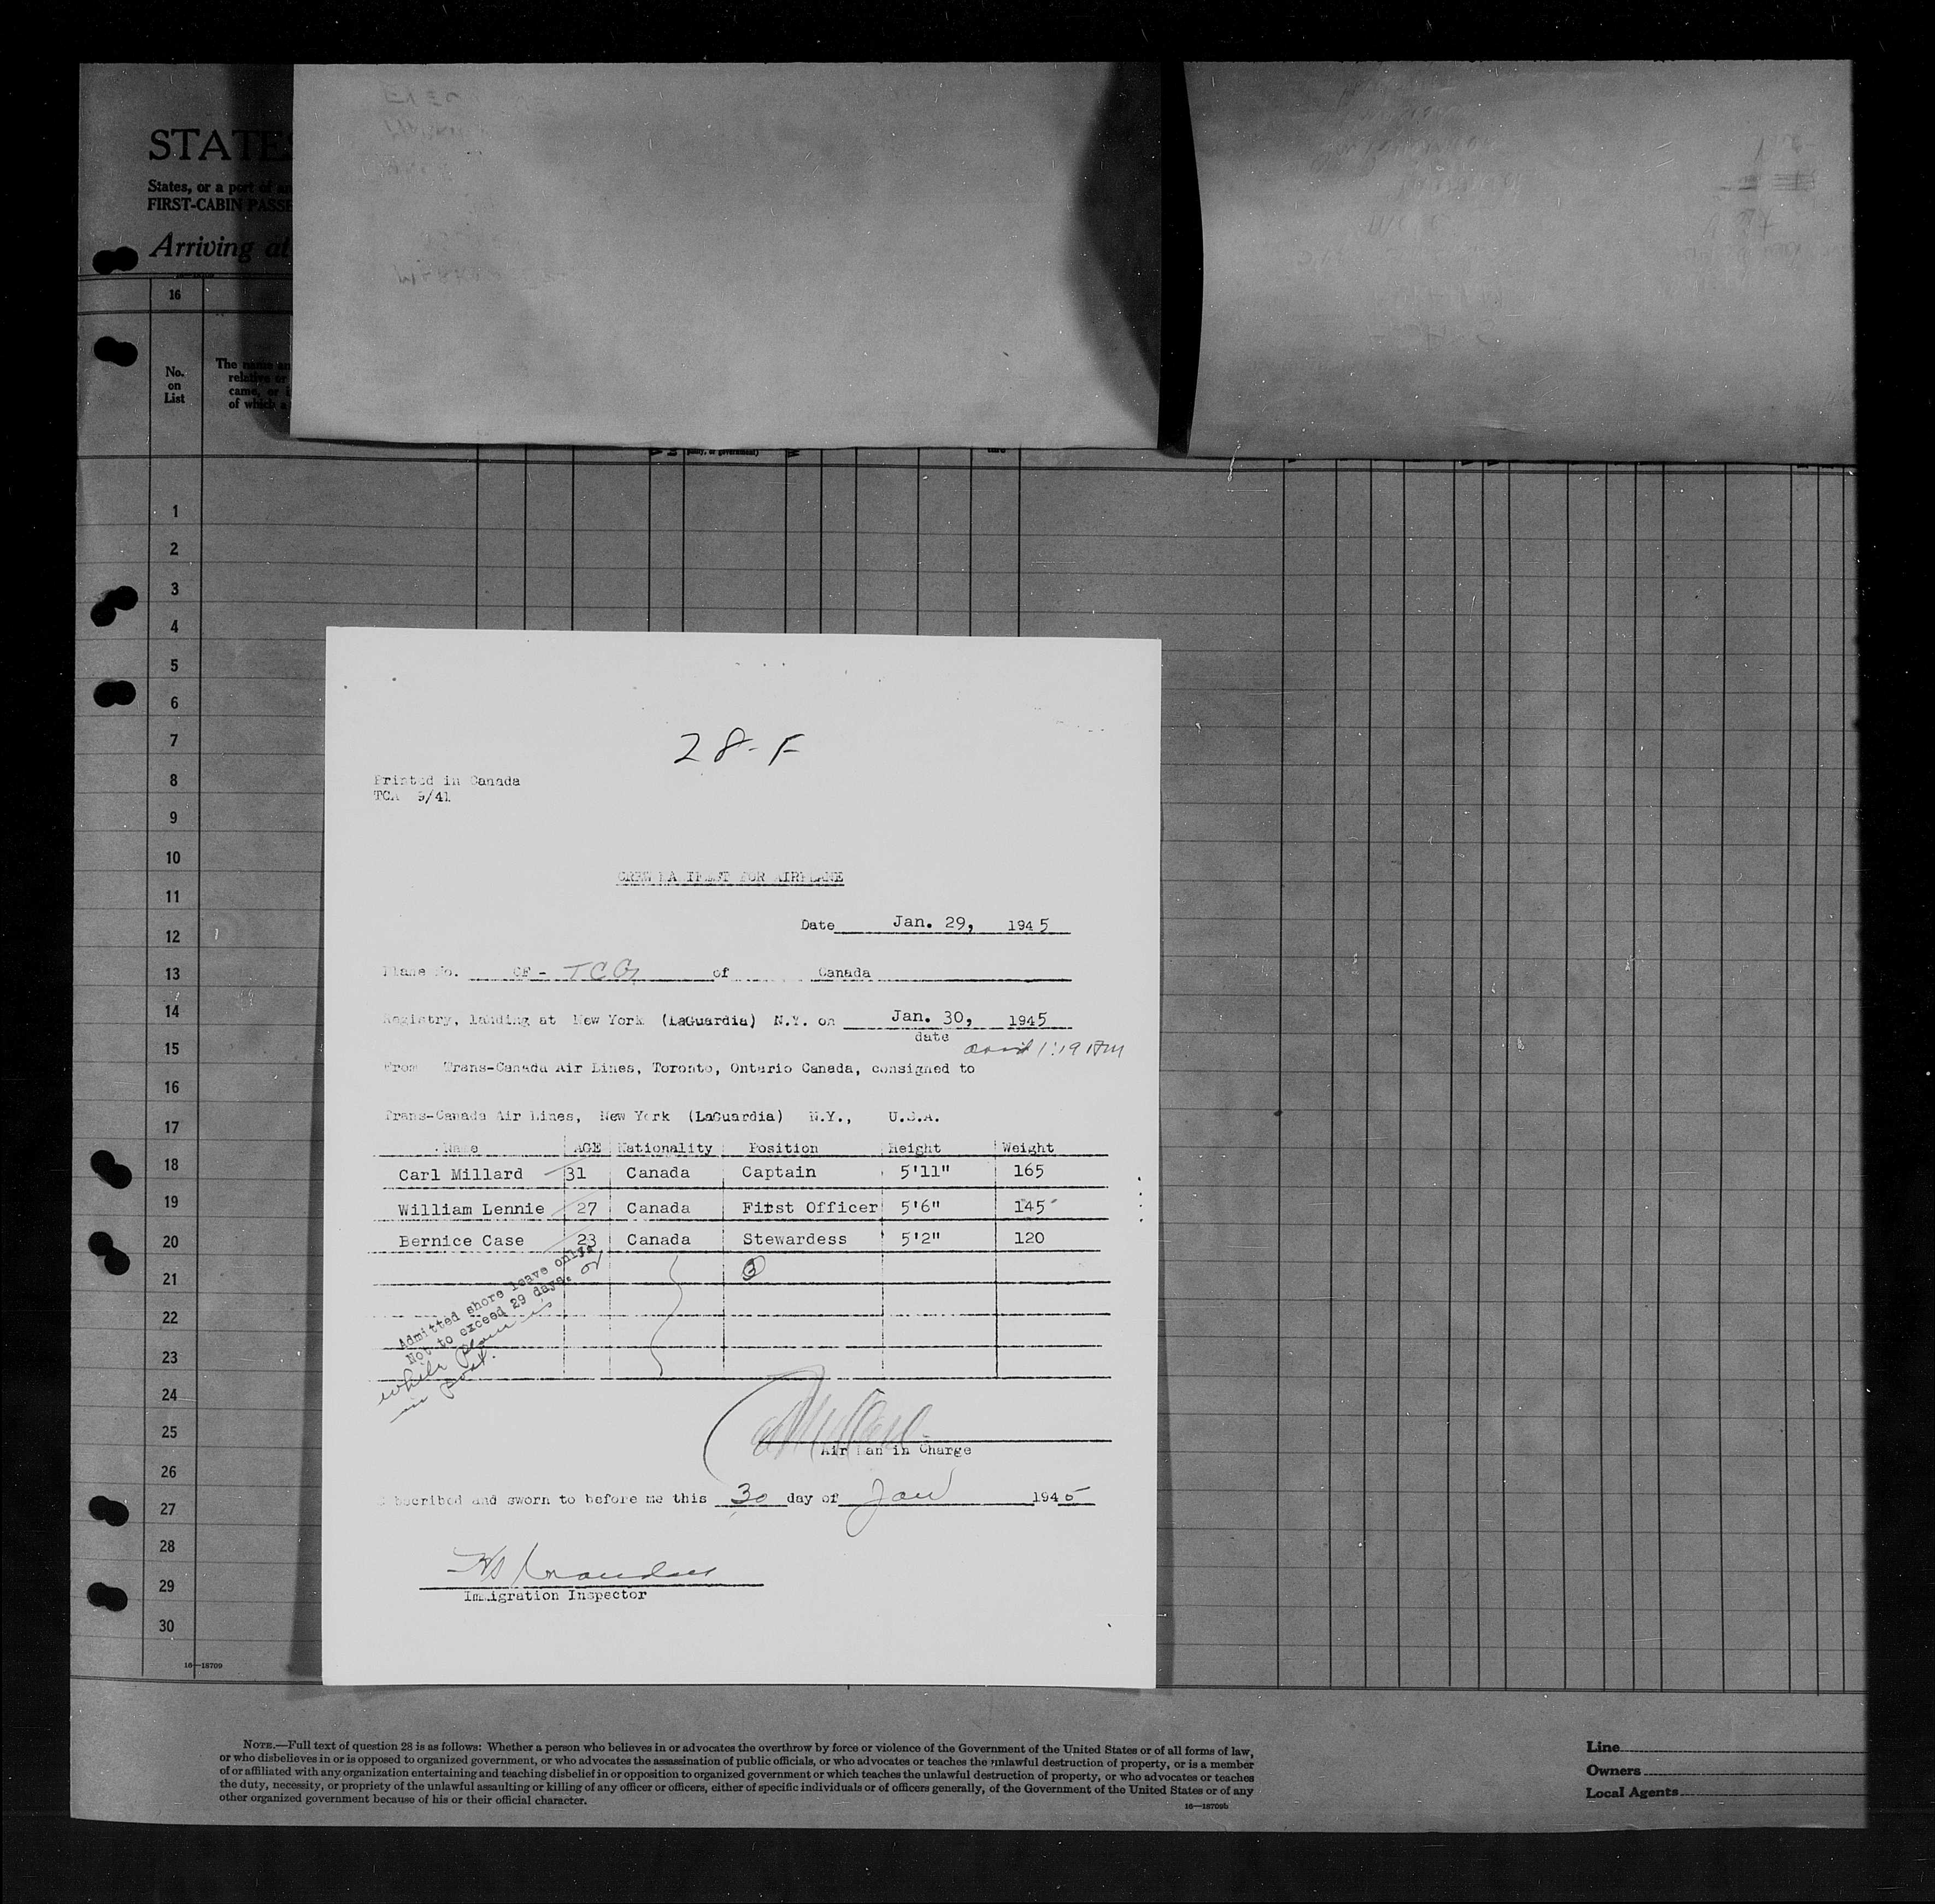 STATES
States, or a port of an
FIRST-CABIN PASSE
Arriving at
16
No.
on
List
The name an
relative or
came, or i
of which a
party, or government)
1
2
3
4
5
6
7
8
9
10
11
12
13
14
15
16
17
18
19
20
21
22
23
24
25
26
27
28
29
30
16—18709
28-F
Printed in Canada
TCA 9/41
CREW MANIFEST FOR AIRPLANE
Date Jan. 29, 1945
Plane No. CF - TCG of Canada
Registry, landing at New York (LaGuardia) N.Y. on Jan. 30, 1945
date
1:19 AM
From Trans-Canada Air Lines, Toronto, Ontario Canada, consigned to
Trans-Canada Air Lines, New York (LaGuardia) N.Y., U.S.A.
Name AGE Nationality Position Height Weight
Carl Millard 31 Canada Captain 5'11" 165
William Lennie 27 Canada First Officer 5'6" 145
Bernice Case 23 Canada Stewardess 5'2" 120
3
Admitted shore leave only,
Not to exceed 29 days. or
while plane is
in port.
Air Man in Charge
Subscribed and sworn to before me this 30 day of Jan 1945
Immigration Inspector
NOTE.—Full text of question 28 is as follows: Whether a person who believes in or advocates the overthrow by force or violence of the Government of the United States or of all forms of law,
or who disbelieves in or is opposed to organized government, or who advocates the assassination of public officials, or who advocates or teaches the unlawful destruction of property, or is a member
of or affiliated with any organization entertaining and teaching disbelief in or opposition to organized government or which teaches the unlawful destruction of property, or who advocates or teaches
the duty, necessity, or propriety of the unlawful assaulting or killing of any officer or officers, either of specific individuals or of officers generally, of the Government of the United States or of any
other organized government because of his or their official character.
16—18709b
Line
Owners
Local Agents